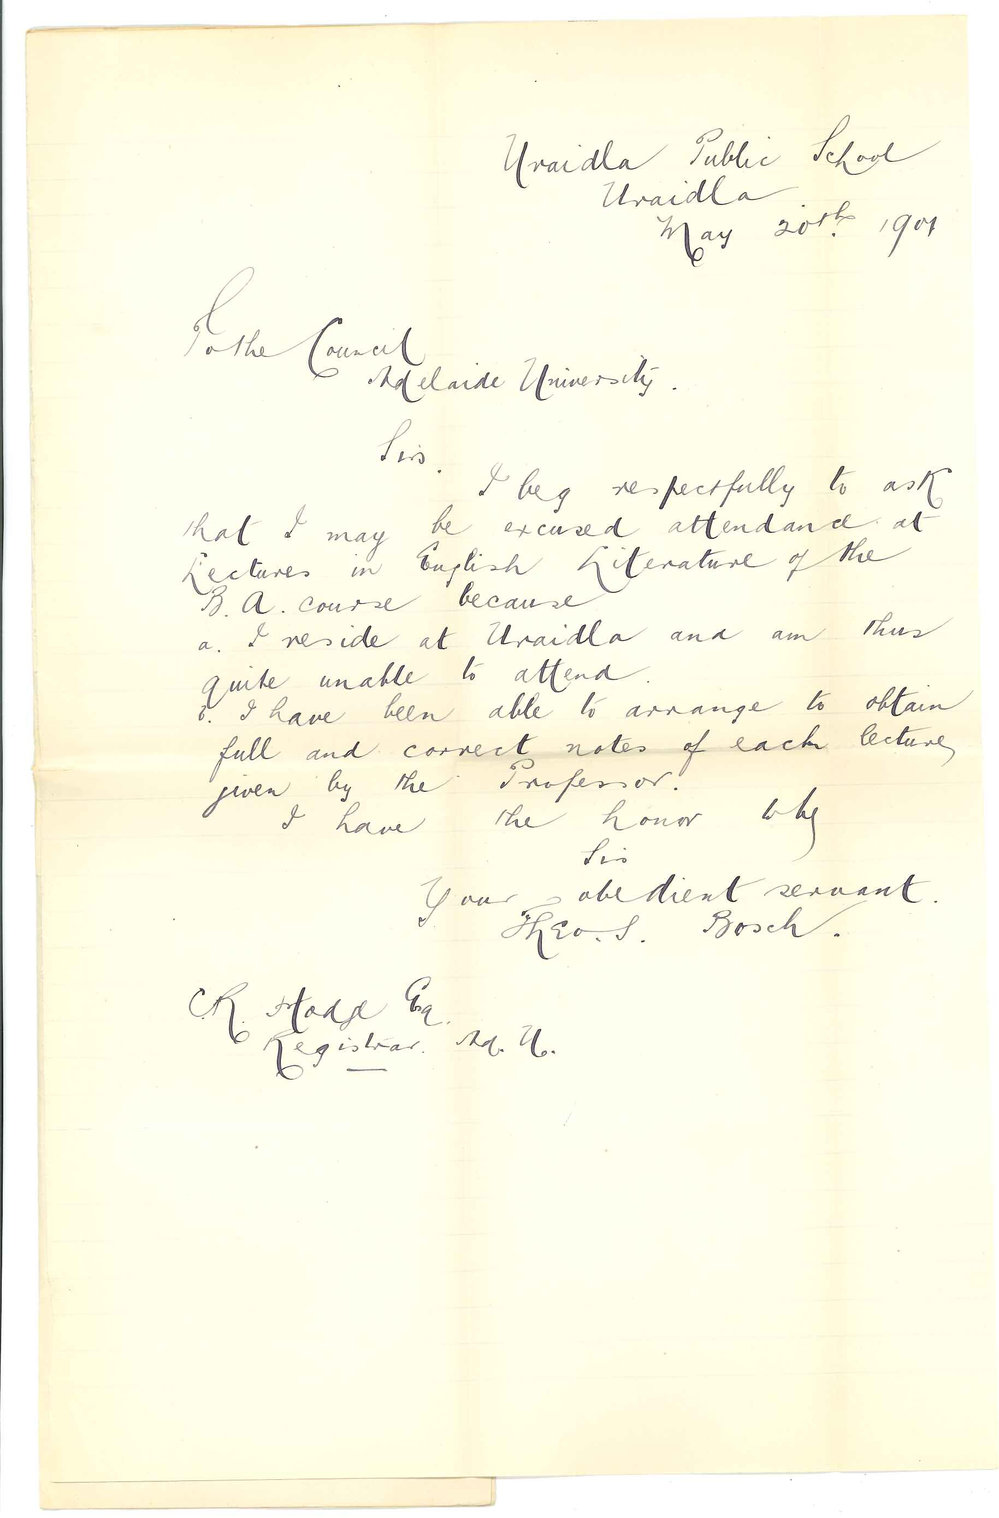 Uraidla Public School
Uraidla
May 20th. 1901
To the Council
Adelaide University.
Sirs.
I beg respectfully to ask
that I may be excused attendance at
Lectures in English Literature of the
B. A. course because
a. I reside at Uraidla and am thus
quite unable to attend.
b. I have been able to arrange to obtain
full and correct notes of each lecture,
given by the Professor.
I have the honor to be
Sir
Your obedient servant.
Theo. S. Bosch.
C.R. Hodge Esq.
Registrar. Ad. U.